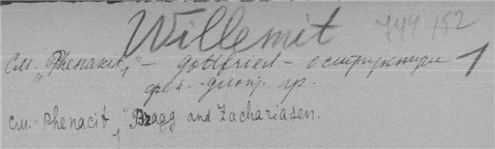 Willemit 744/52
См. "Phenacit" – Gottfried – о структуре 1
гр.
См. "Phenacit", Bragg and Zachariasen.